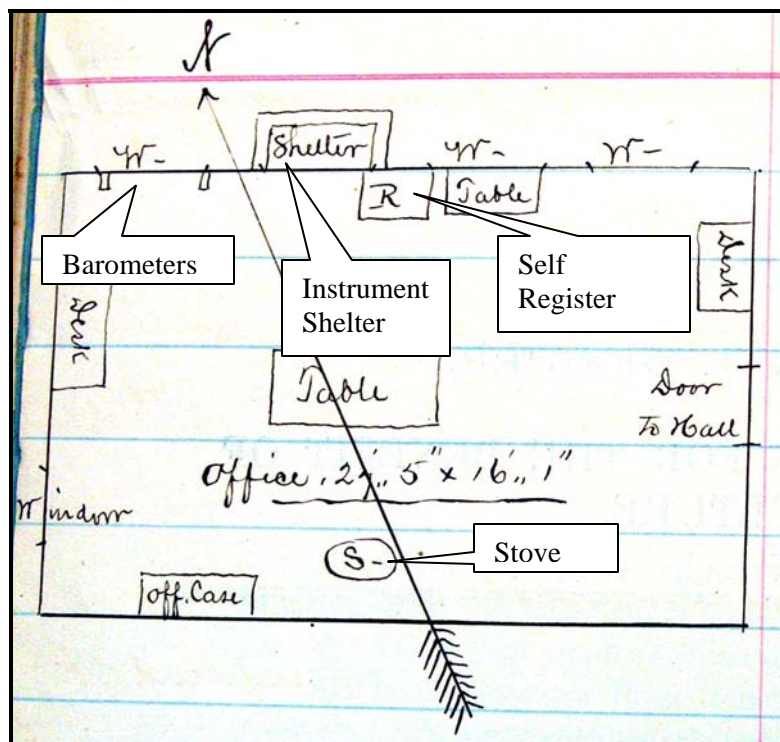 N
W-
Shelter
W-
W-
R
Table
Desk
Barometers
Instrument
Shelter
Self
Register
Desk
Table
Door
To Hall
Office, 27,, 5" x 16,, 1"
Window
S-
Stove
Off. Case